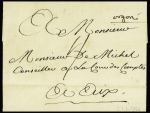 orgon
A Monsieur
Monsieur De Michel
Conseiller a La Cour des Comptes
A Aix